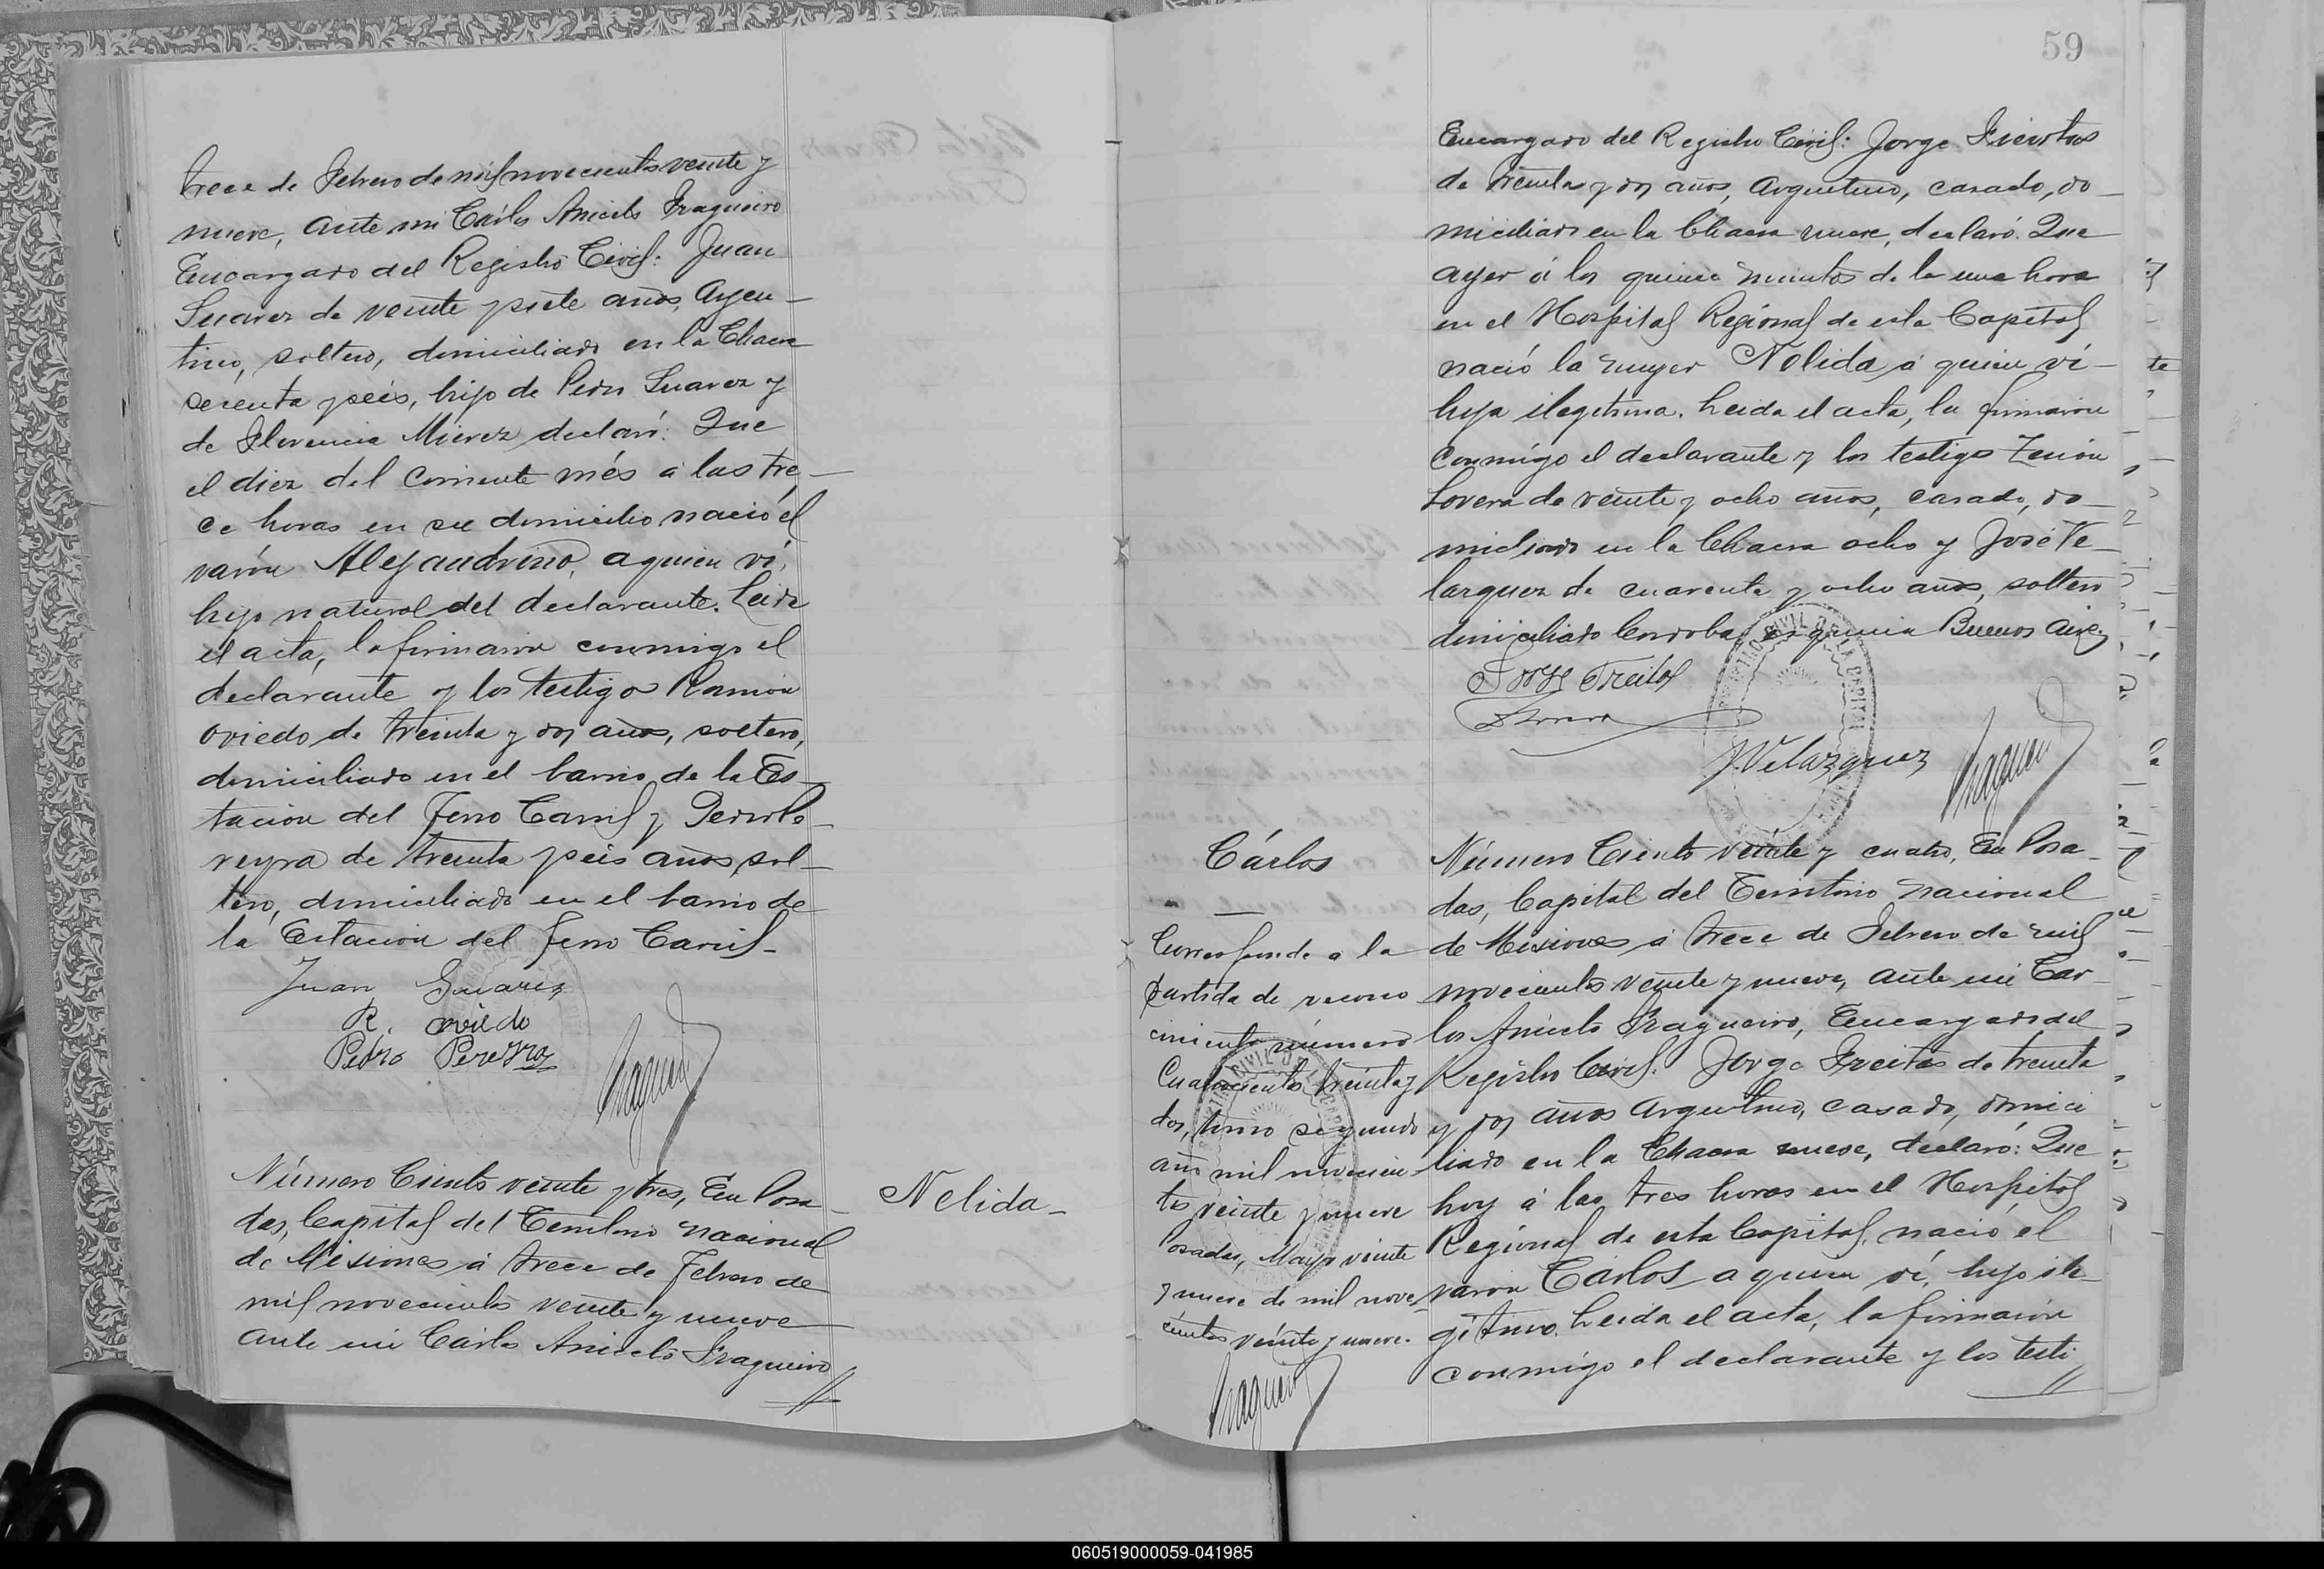 trece de Febrero de mil novecientos veinte y
nueve, ante mi Cárlos Aniceto Fragueiro
Encargado del Registro Civil: Juan
Suarez de veinte y siete años, Argen-
tino, soltero, domiciliado en la Chacra
sesenta y seis, hijo de Pedro Suarez y
de Florencia Mierez declaró: Que
el diez del corriente més a las tre-
ce horas en su domicilio nació el
varón Alejandrino, a quien ví,
hijo natural del declarante. Leida
el acta, la firmaron conmigo el
declarante y los testigos Ramón
Oviedo de treinta y dos años, soltero,
domiciliado en el barrio de la Es-
tacion del Ferro Carril y Pedro Pe-
reyra de treinta y seis años, sol-
tero, domiciliado en el barrio de
la Estacion del Ferro Carril-
Juan Suarez
R. oviedo
Pedro Pereyra
Fragueiro
Número Ciento veinte y tres, En Posa-
das, Capital del Territorio nacional
de Misiones á trece de Febrero de
mil novecientos veinte y nueve
ante mi Cárlos Aniceto Fragueiro
Nelida-
59
Encargado del Registro Civil: Jorge Freitas
de treinta y dos años, Argentino, casado, do-
miciliado en la Chacra nueve, declaró: Que
ayer á los quince minutos de la una hora
en el Hospital Regional de esta Capital
nació la mujer Nelida á quien ví-
hija ilegitima. Leida el acta, la firmaron
conmigo el declarante y los testigos Zenón
Lovera de veinte y ocho años, casado, do-
miciliado en la Chacra ocho y José Ve-
lazquez de cuarenta y ocho años, soltero
domiciliado Cordoba esquina Buenos Aires
Jorge Freitas
J. Velazquez
Fragueiro
Cárlos
Corresponde a la
partida de recono
cimiento número
Cuatrocientos treinta y
dos, tomo segundo
año mil novecien
tos veinte y nueve
Posadas, Mayo veinte
y nueve de mil nove
cientos veinte y nueve.
Fragueiro
Número Ciento veinte y cuatro, En Posa-
das, Capital del Territorio nacional
de Misiones á trece de Febrero de mil
novecientos veinte y nueve, ante mi Car-
los Aniceto Fragueiro, Encargado del
Registro Civil: Jorge Freitas de treinta
y dos años Argentino, casado, domici
liado en la Chacra nueve, declaró: Que
hoy á las tres horas en el Hospital
Regional de esta Capital, nació el
varon Cárlos a quien ví, hijo ile-
gitimo. Leida el acta, la firmaron
conmigo el declarante y los testi
060519000059-041985